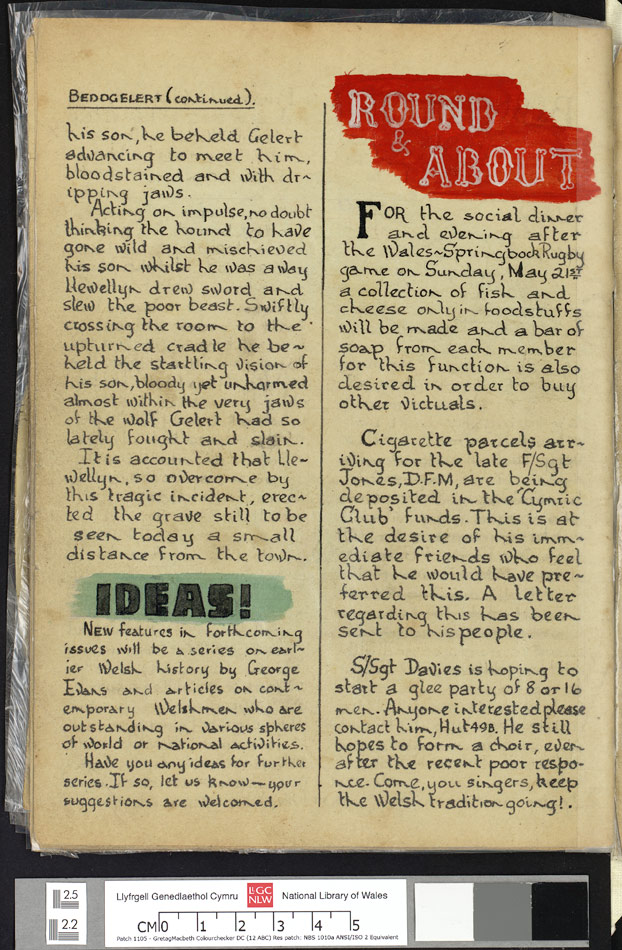 BEDDGELERT (continued).
his son, he beheld Gelert
advancing to meet him,
bloodstained and with dr~
ipping jaws.
Acting on impulse, no doubt
thinking the hound to have
gone wild and mischieved
his son whilst he was away
Llewellyn drew sword and
slew the poor beast. Swiftly
crossing the room to the
upturned cradle he be~
held the startling vision of
his son, bloody yet unharmed
almost within the very jaws
of the wolf Gelert had so
lately fought and slain.
It is accounted that Lle~
wellyn, so overcome by
this tragic incident, erec~
ted the grave still to be
seen today a small
distance from the town.
IDEAS!
NEW features in forthcoming
issues will be a series on earl~
ier Welsh history by George
Evans and articles on cont~
emporary Welshmen who are
outstanding in various spheres
of world or national activities.
Have you any ideas for further
series. If so, let us know—your
suggestions are welcomed.
ROUND
& ABOUT
FOR the social dinner
and evening after
the Wales~Springbock Rugby
game on Sunday, May 21st
a collection of fish and
cheese only in foodstuffs
will be made and a bar of
soap from each member
for this function is also
desired in order to buy
other victuals.
Cigarette parcels arr~
iving for the late F/Sgt
Jones, D.F.M, are being
deposited in the 'Cymric
Club' funds. This is at
the desire of his imm~
ediate friends who feel
that he would have pre~
ferred this. A letter
regarding this has been
sent to his people.
S/Sgt Davies is hoping to
start a glee party of 8 or 16
men. Anyone interested please
contact him, Hut 49B. He still
hopes to form a choir, even
after the recent poor respo~
nce. Come, you singers, keep
the Welsh tradition going!.
2.5
2.2
Llyfrgell Genedlaethol Cymru
LlGC
NLW
National Library of Wales
CM 0 1 2 3 4 5
Patch 1105 - GretagMacbeth Colourchecker DC (12 ABC) Res patch: NBS 1010a ANSI/ISO 2 Equivalent